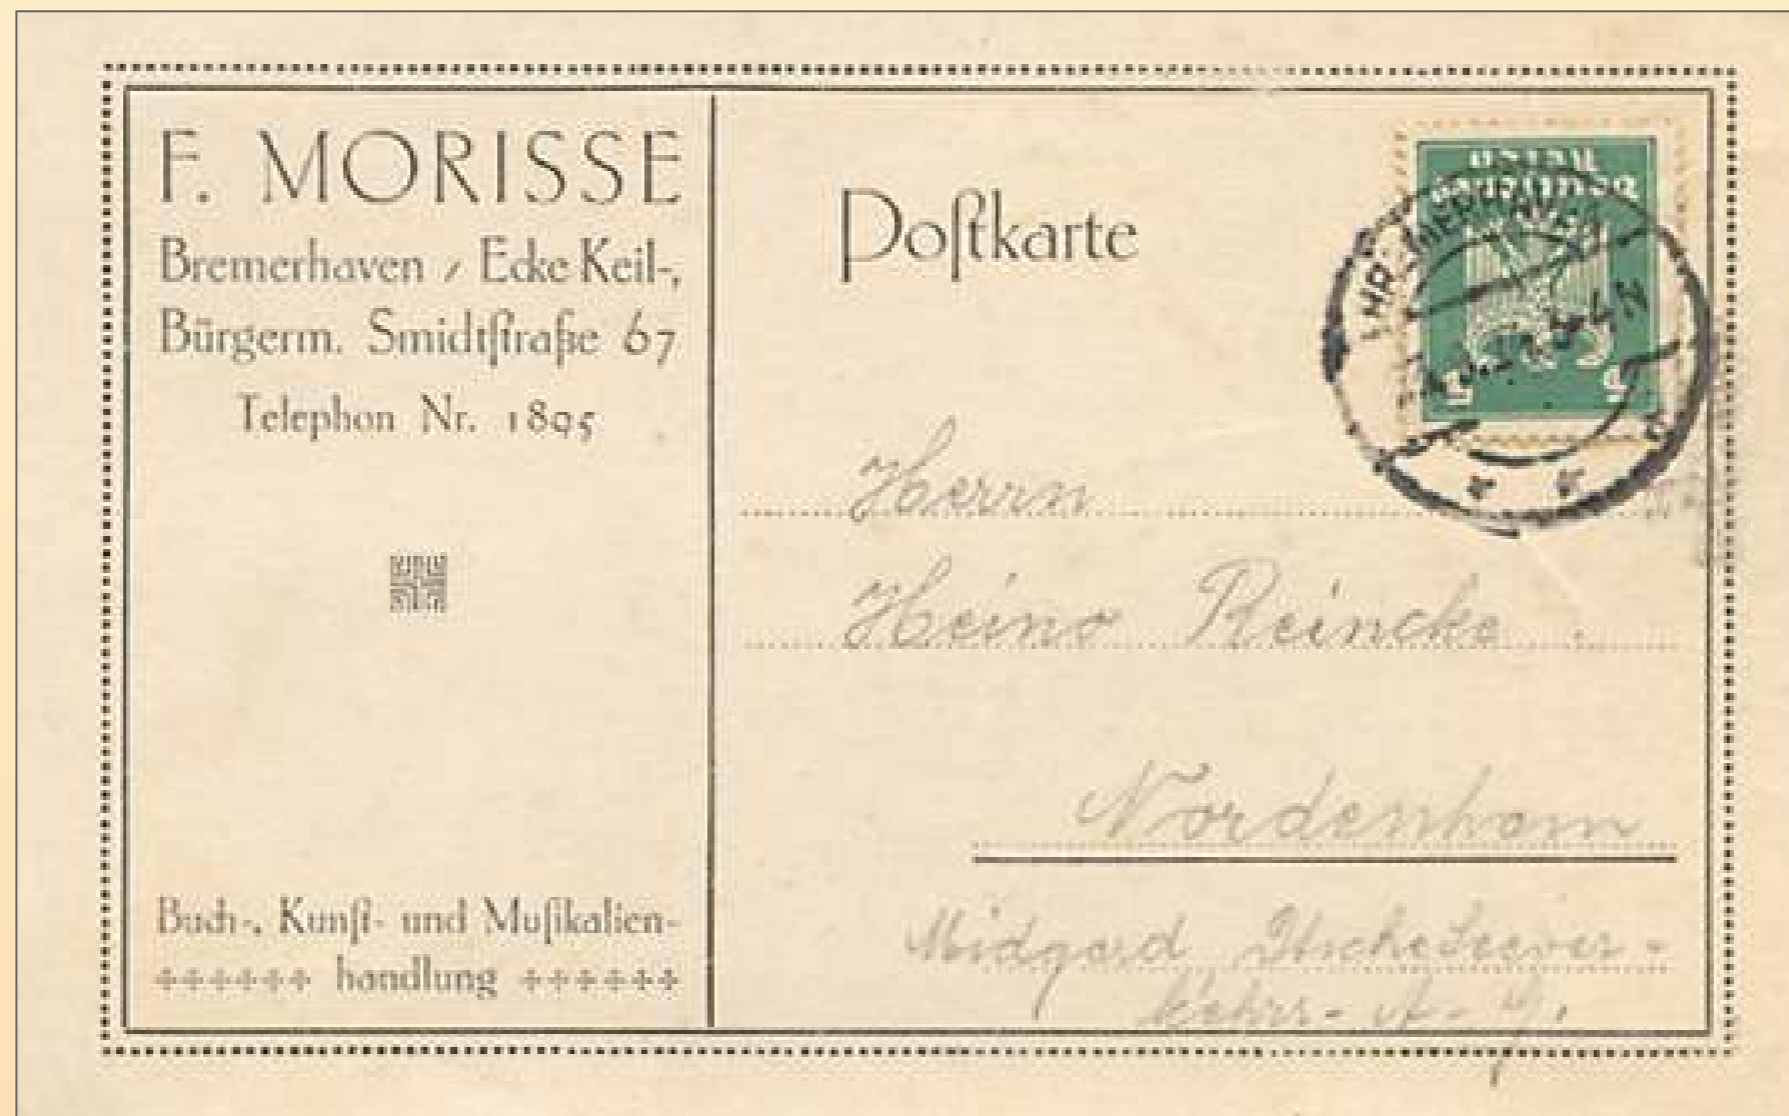 F. MORISSE
Bremerhaven / Ecke Keil-,
Bürgerm. Smidtſtraße 67
Telephon Nr. 1895
Buch-, Kunſt- und Muſikalien-
handlung
Poſtkarte
Herrn
Heino Reincke
Nordenham
Midgard Dtsche Seever-
kehrs-A-G.
5 5